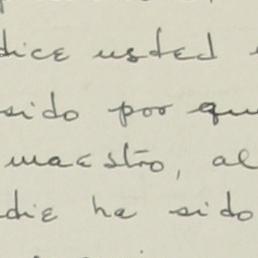 dice usted
sido por qu
maestro, al
die ha sido